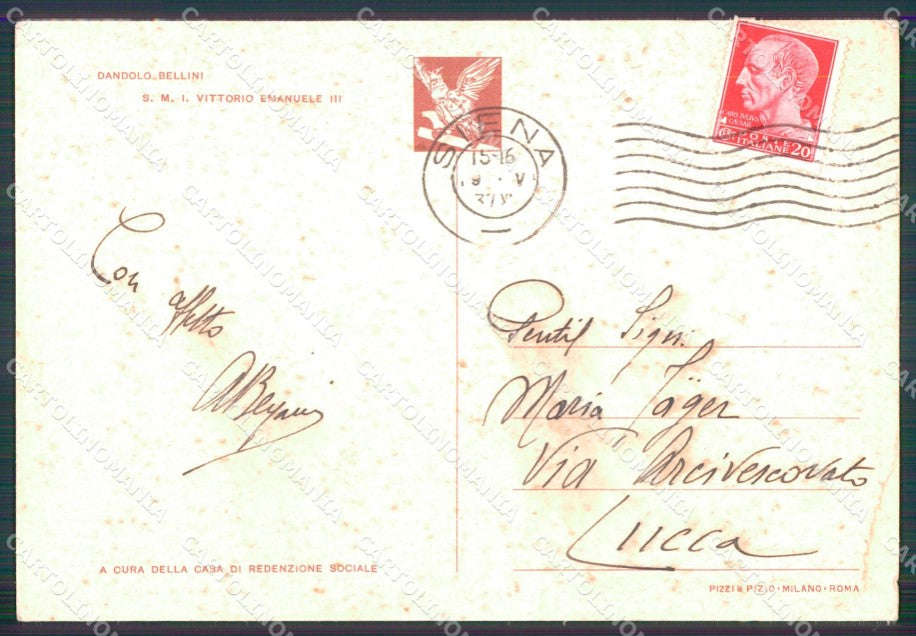 DANDOLO BELLINI
S. M. I. VITTORIO EMANUELE III
SIENA
15-16
V
POSTE
ITALIANE 20
Con
affetto
Gentil Sign.
Maria Jäger
Via Arcivescovato
Lucca
A CURA DELLA CASA DI REDENZIONE SOCIALE
PIZZI & PIZIO · MILANO · ROMA
CARTOLINOMANIA